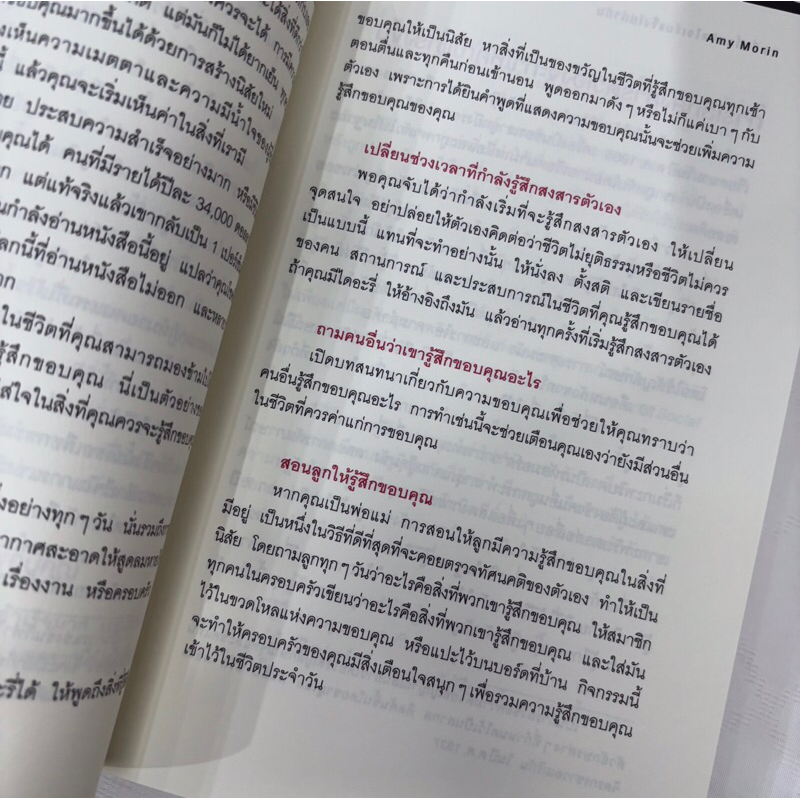 คุณมากขึ้นได้ด้วยการสร้างนิสัยใหม่
เห็นความเมตตาและความมีน้ำใจของ
แล้วคุณจะเริ่มเห็นค่าในสิ่งที่เรามี
ประสบความสำเร็จอย่างมาก
คนที่มีรายได้ปีละ 34,000
แต่แท้จริงแล้วเขากลับเป็น 1
กำลังอ่านหนังสือนี้อยู่ แปลว่า
โลกนี้ที่อ่านหนังสือไม่ออก
ในชีวิตที่คุณสามารถมองข้าม
รู้สึกขอบคุณ นี่เป็นตัวอย่าง
ใส่ใจในสิ่งที่คุณควรจะรู้สึกขอบคุณ
อย่างทุกๆวัน นั่นรวมถึง
อากาศสะอาดให้สูดลมหายใจ
เรื่องงาน หรือครอบครัว
ให้พูดถึงสิ่งที่
Amy Morin
ขอบคุณให้เป็นนิสัย หาสิ่งที่เป็นของขวัญในชีวิตที่รู้สึกขอบคุณทุกเช้า
ตอนตื่นและทุกคืนก่อนเข้านอน พูดออกมาดังๆหรือไม่ก็แค่เบาๆกับ
ตัวเอง เพราะการได้ยินคำพูดที่แสดงความขอบคุณนั้นจะช่วยเพิ่มความ
รู้สึกขอบคุณของคุณ
เปลี่ยนช่วงเวลาที่กำลังรู้สึกสงสารตัวเอง
พอคุณจับได้ว่ากำลังเริ่มที่จะรู้สึกสงสารตัวเอง ให้เปลี่ยน
จุดสนใจ อย่าปล่อยให้ตัวเองคิดต่อว่าชีวิตไม่ยุติธรรมหรือชีวิตไม่ควร
เป็นแบบนี้ แทนที่จะทำอย่างนั้น ให้นั่งลง ตั้งสติ และเขียนรายชื่อ
ของคน สถานการณ์ และประสบการณ์ในชีวิตที่คุณรู้สึกขอบคุณได้
ถ้าคุณมีไดอะรี่ ให้อ้างอิงถึงมัน แล้วอ่านทุกครั้งที่เริ่มรู้สึกสงสารตัวเอง
ถามคนอื่นว่าเขารู้สึกขอบคุณอะไร
เปิดบทสนทนาเกี่ยวกับความขอบคุณเพื่อช่วยให้คุณทราบว่า
คนอื่นรู้สึกขอบคุณอะไร การทำเช่นนี้จะช่วยเตือนคุณเองว่ายังมีส่วนอื่น
ในชีวิตที่ควรค่าแก่การขอบคุณ
สอนลูกให้รู้สึกขอบคุณ
หากคุณเป็นพ่อแม่ การสอนให้ลูกมีความรู้สึกขอบคุณในสิ่งที่
มีอยู่ เป็นหนึ่งในวิธีที่ดีที่สุดที่จะคอยตรวจทัศนคติของตัวเอง ทำให้เป็น
นิสัย โดยถามลูกทุกๆวันว่าอะไรคือสิ่งที่พวกเขารู้สึกขอบคุณ ให้สมาชิก
ทุกคนในครอบครัวเขียนว่าอะไรคือสิ่งที่พวกเขารู้สึกขอบคุณ และใส่มัน
ไว้ในขวดโหลแห่งความขอบคุณ หรือแปะไว้บนบอร์ดที่บ้าน กิจกรรมนี้
จะทำให้ครอบครัวของคุณมีสิ่งเตือนใจสนุกๆเพื่อรวมความรู้สึกขอบคุณ
เข้าไว้ในชีวิตประจำวัน